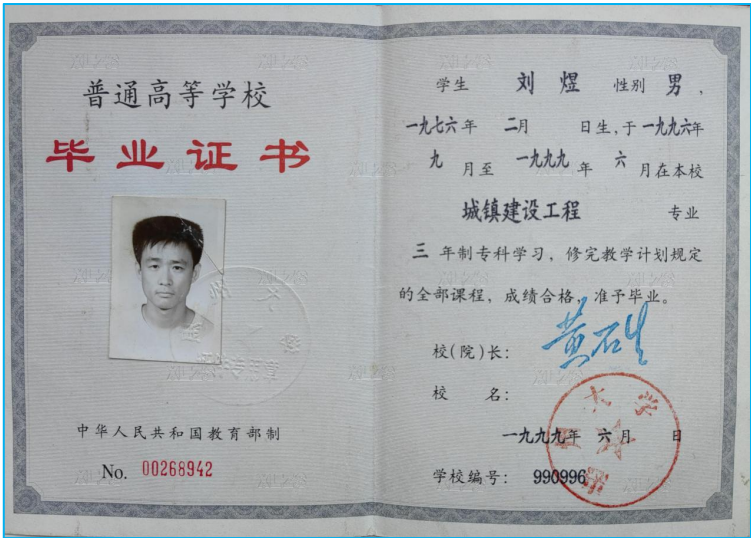 普通高等学校
毕业证书
中华人民共和国教育部制
No. 00268942
学生 刘煜 性别 男,
一九七六年 二月 日生,于一九九六年
九 月至 一九九九 年 六 月在本校
城镇建设工程 专业
三 年制专科学习,修完教学计划规定
的全部课程,成绩合格,准予毕业。
校(院)长:
校 名:
一九九九年 六月 日
学校编号: 990996